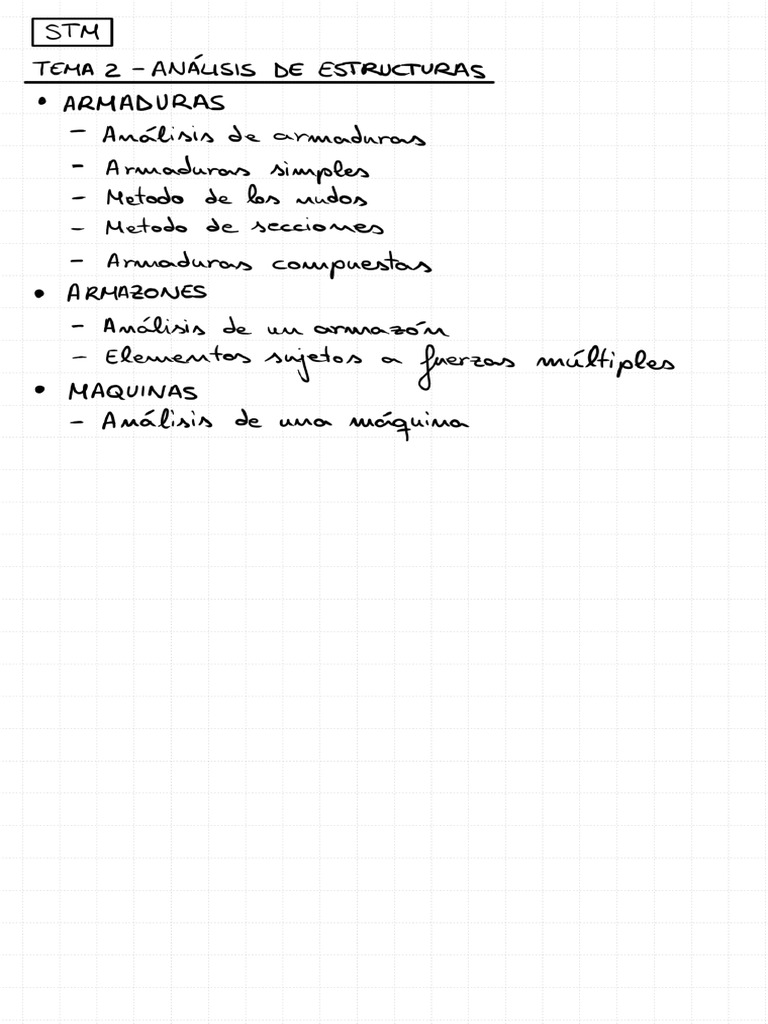 STM
TEMA 2 - ANÁLISIS DE ESTRUCTURAS
• ARMADURAS
- Análisis de armaduras
- Armaduras simples
- Metodo de los nudos
- Metodo de secciones
- Armaduras compuestas
• ARMAZONES
- Análisis de un armazón
- Elementos sujetos a fuerzas múltiples
• MAQUINAS
- Análisis de una máquina